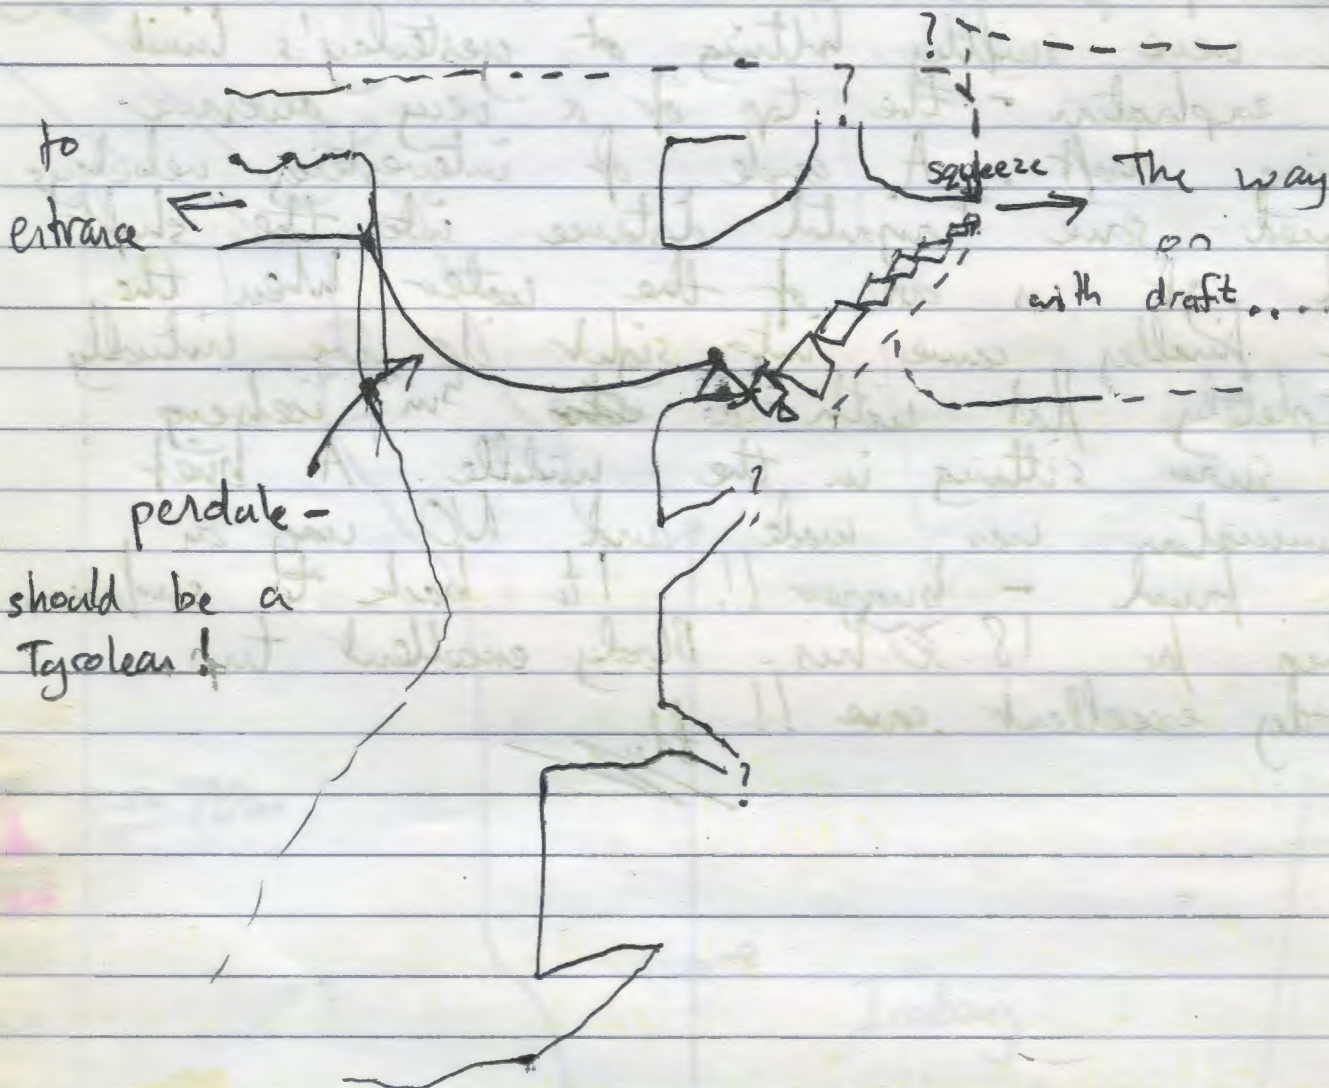 ?
?
to
entrance
squeeze
The way
on
with draft....
?
pendule -
should be a
Tyrolean!
?